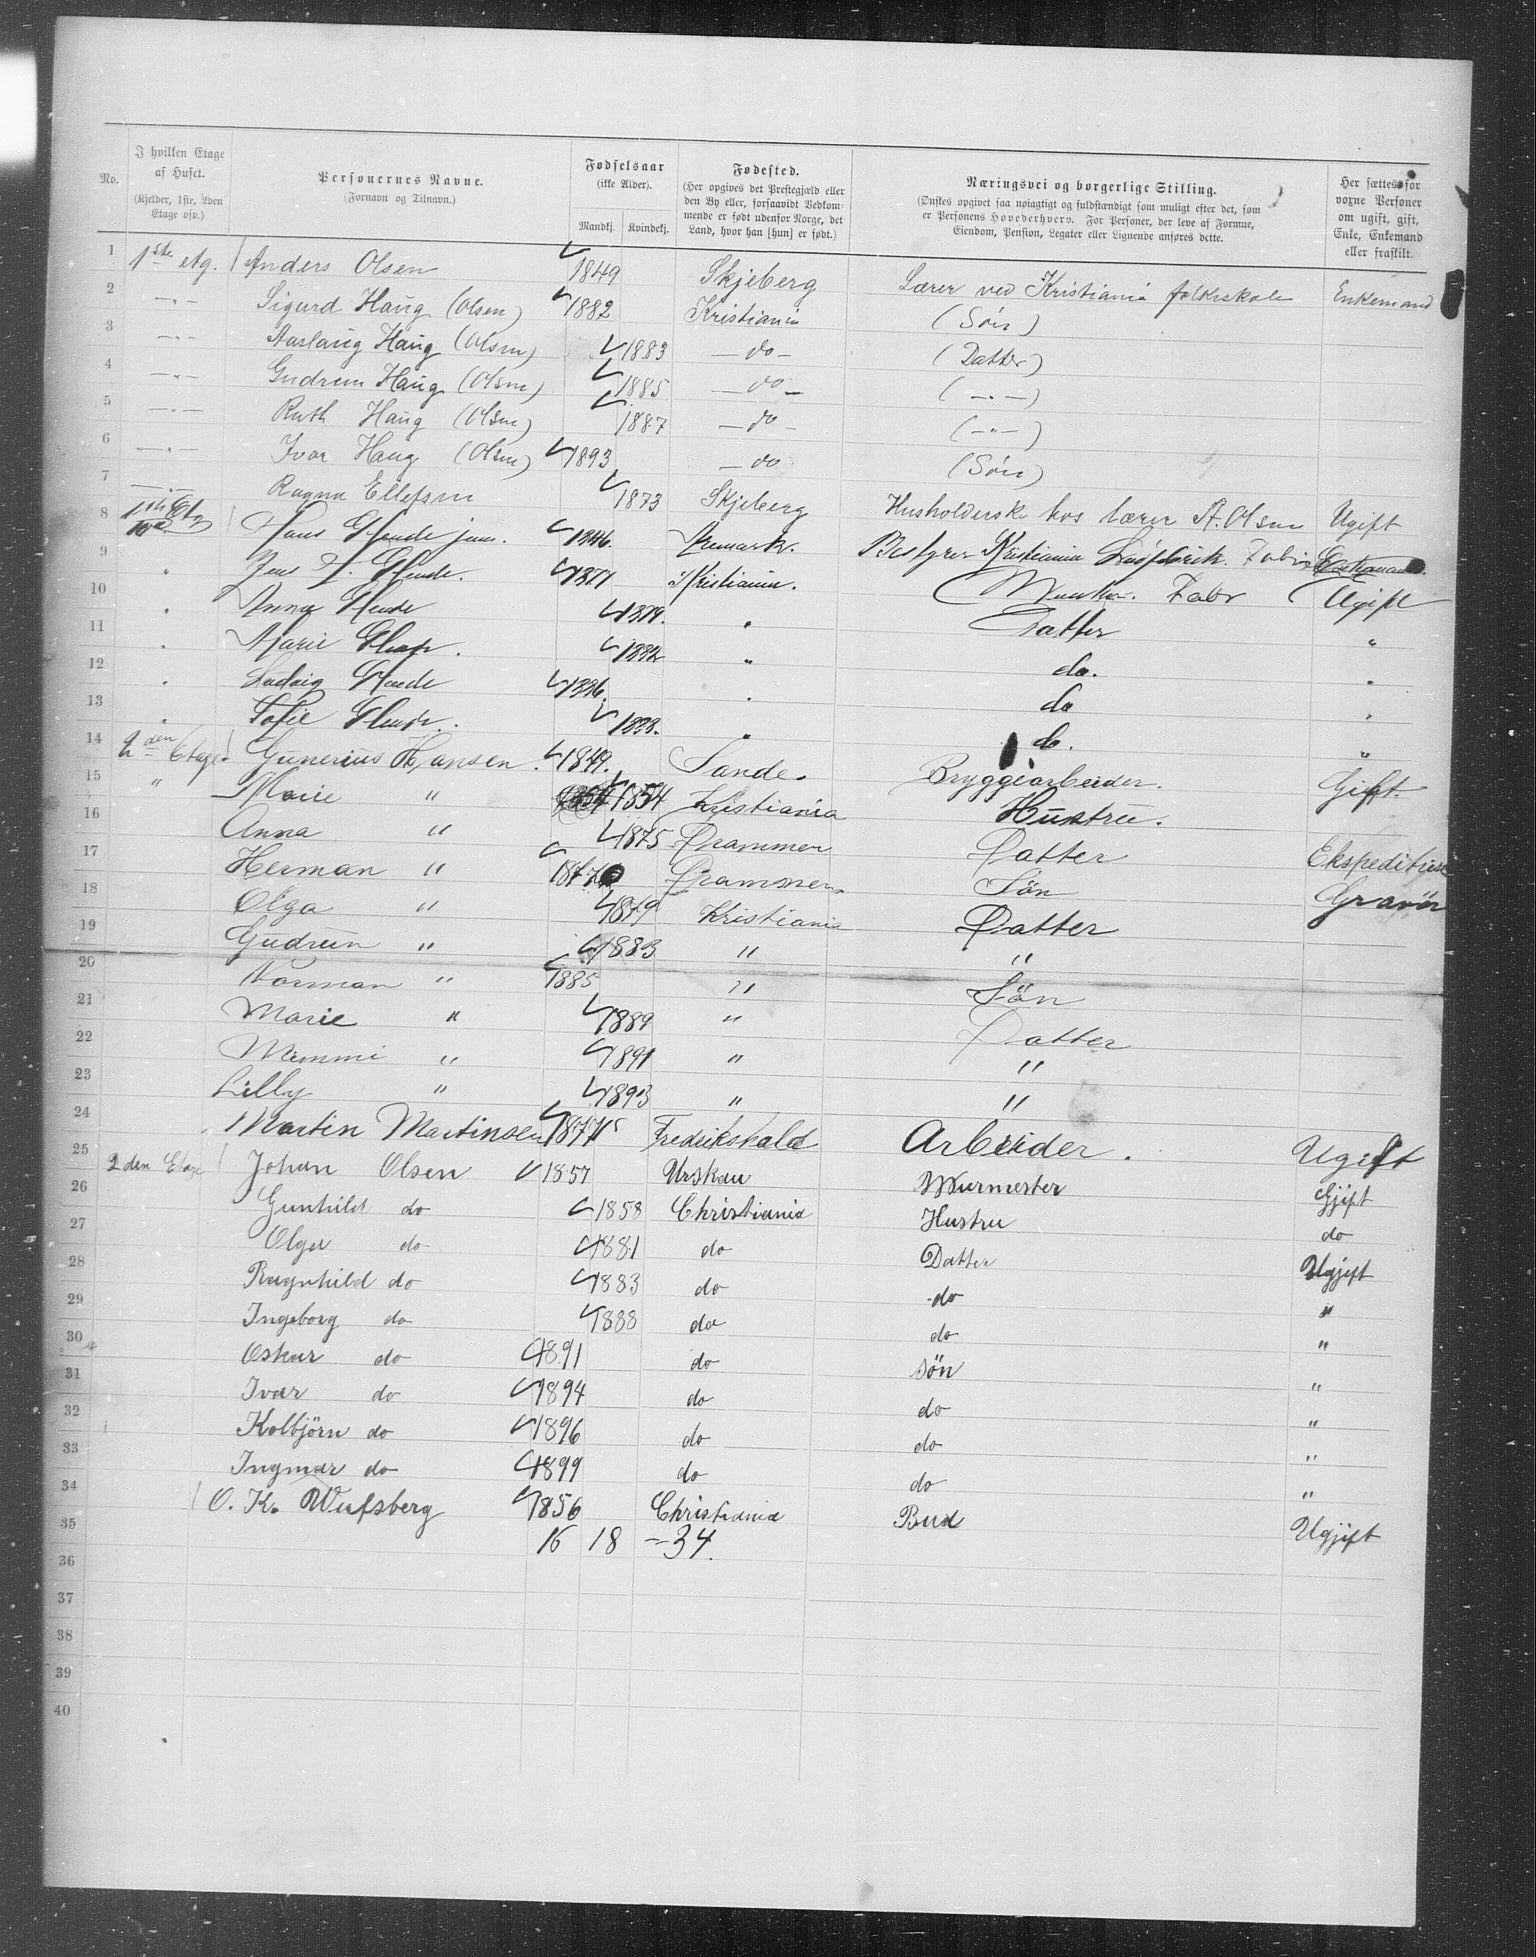 No. | I hvilken Etage af Huset. (Kjelder, 1ste, 2den Etage osv.) | Personernes Navne. (Fornavn og Tilnavn.) | Fødselsaar (ikke Alder). Mandkj. Kvindekj. | Fødested. (Her opgives det Prestegjæld eller den By eller, forsaavidt Vedkommende er født udenfor Norge, det Land, hvor han [hun] er født.) | Næringsvei og borgerlige Stilling. (Ønskes opgivet saa nøiagtigt og fuldstændigt som muligt efter det, som er Personens Hovederhverv. For Personer, der leve af Formue, Eiendom, Pension, Legater eller Lignende anføres dette. | Her sættes for voxne Personer om ugift, gift, Enke, Enkemand eller fraskilt.
1 1ste etg. Anders Olsen 1849 Skjeberg Lærer ved Kristiania folkeskole Enkemand
2 —"— Sigurd Haug (Olsen) 1882 Kristiania (Søn)
3 —"— Aaslaug Haug (Olsen) 1883 —do— (Datter)
4 —"— Gudrun Haug (Olsen) 1885 —do— (—"—)
5 —"— Ruth Haug (Olsen) 1887 —do— (—"—)
6 —"— Ivar Haug (Olsen) 1893 —do (Søn)
7 —"— Ragna Ellefsen 1873 Skjeberg Husholderske hos lærer A. Olsen Ugift
8 1ste Etg Hans Glende jun. 1846. Aremark. Bestyrer Kristiania Enkemand
9 " Jens Glende. 1877 Kristiania. Ugift
10 " Anna Glende 1879. " Datter "
11 . Marie Glende. 1882 " do. "
12 . Ludvig Glende 1886. . do "
13 . Sofie Glende. 1888. " do. "
14 2den Etage. Gunerius Hansen. 1849. Sande. Bryggiarbeider. Gift.
15 " Marie " 1854 Kristiania Hustru.
16 Anna " 1875 Drammen Datter Ekspeditrise
17 Herman " Drammen Søn Gravör
18 Olga " 1879 Kristiania Datter
19 Gudrun " 1883 " "
20 Norman " 1885 " Sön
21 Marie " 1889 " Datter
22 Mimmi " 1891 " "
23 Lilly " 1893 " "
24 Martin Martinsen Fredrikshald Arbeider. Ugift
25 2den Etage Johan Olsen 1857 Urskau Murmester Gjift
26 Gunhild do 1858 Christiania Hustru do
27 Olga do 1881 do Datter Ugjift
28 Ragnhild do 1883 do do "
29 Ingeborg do 1888 do do "
30 Oskar do 1891 do sön "
31 Ivar do 1894 do do "
32 Kolbjörn do 1896 do do "
33 Ingmar do 1899 do do "
34 O. K. Wulfsberg 1856 Christiania Bud Ugjift
35 16 18 – 34.
36
37
38
39
40